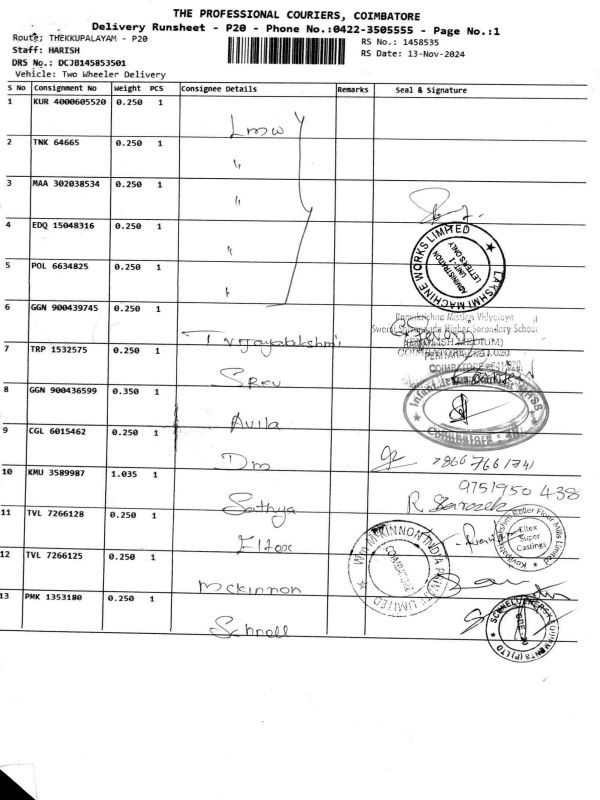 THE PROFESSIONAL COURIERS, COIMBATORE
Delivery Runsheet - P20 - Phone No.:0422-3505555 - Page No.:1
Route: THEKKUPALAYAM - P20
RS No.: 1458535
Staff: HARISH
RS Date: 13-Nov-2024
DRS No.: DCJB145853501
Vehicle: Two Wheeler Delivery
S No Consignment No Weight PCS Consignee Details Remarks Seal & Signature
1 KUR 4000605520 0.250 1 Lmw
2 TNK 64665 0.250 1 "
3 MAA 302038534 0.250 1 "
4 EDQ 15048316 0.250 1 "
LAKSHMI MACHINE WORKS LIMITED
ADMINISTRATION
UNIT-1
LETTERS ONLY
5 POL 6634825 0.250 1 "
6 GGN 900439745 0.250 1 T Vijayalakshmi
Ramakrishna Mission Vidyalaya
Higher Secondary School
(ENGLISH MEDIUM)
7 TRP 1532575 0.250 1 SRKV
COIMBATORE - 641 020
8 GGN 900436599 0.350 1 Avila
Coimbatore
9 CGL 6015462 0.250 1 Dm 78667661741
10 KMU 3589987 1.035 1 Sathya 9751950438
11 TVL 7266128 0.250 1 Eltex
Roller Flour Mills Limited
Eltex
Super
Castings
12 TVL 7266125 0.250 1 Mckinnon
MCKINNON INDIA PRIVATE LIMITED
13 PMK 1353180 0.250 1 Schnell
SCHNELL ENERGY EQUIPMENTS (P) LTD
CBE-20